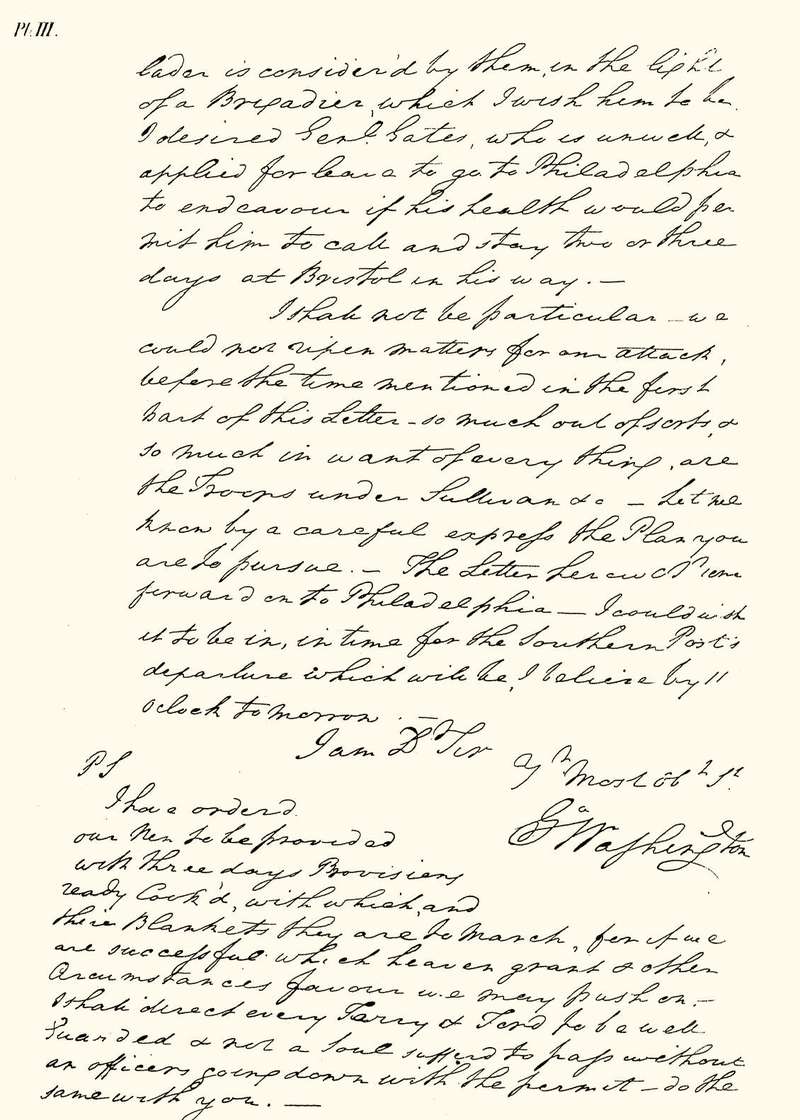 Pl. III.
lader is consider'd by them, in the light
of a Brigadier, which I wish him to be.
I desired Genl. Gates, who is unwell, &
applied for leave to go to Philadelphia
to endeavour if his health would per
mit him to call and stay two or three
days at Bristol in his way. —
I shall not be particular — we
could not ripen matters for our attack,
before the time mentioned in the first
part of this Letter — so much out of sorts, &
so much in want of every thing, are
the Troops under Sullivan &c — Let me
know by a careful express the Plan you
are to pursue. — The Letter herewith
forward on to Philadelphia — I could wish
it to be in, in time for the Southern Post's
departure which will be, I believe by 11
oclock tomorrow. —
I am Dr Sir
Yr Most obt St.
Go Washington
PS
I have orderd
our Men to be provided
with three days Provisions
ready Cook'd, with which, and
their Blankets they are to March, for if we
are successful which heaven grant & other
Circumstances favour we may push on. —
I shall direct every Ferry & Ford to be well
Guarded & not a Soul sufferd to pass without
an officers going down with the permit — do the
same with you. —